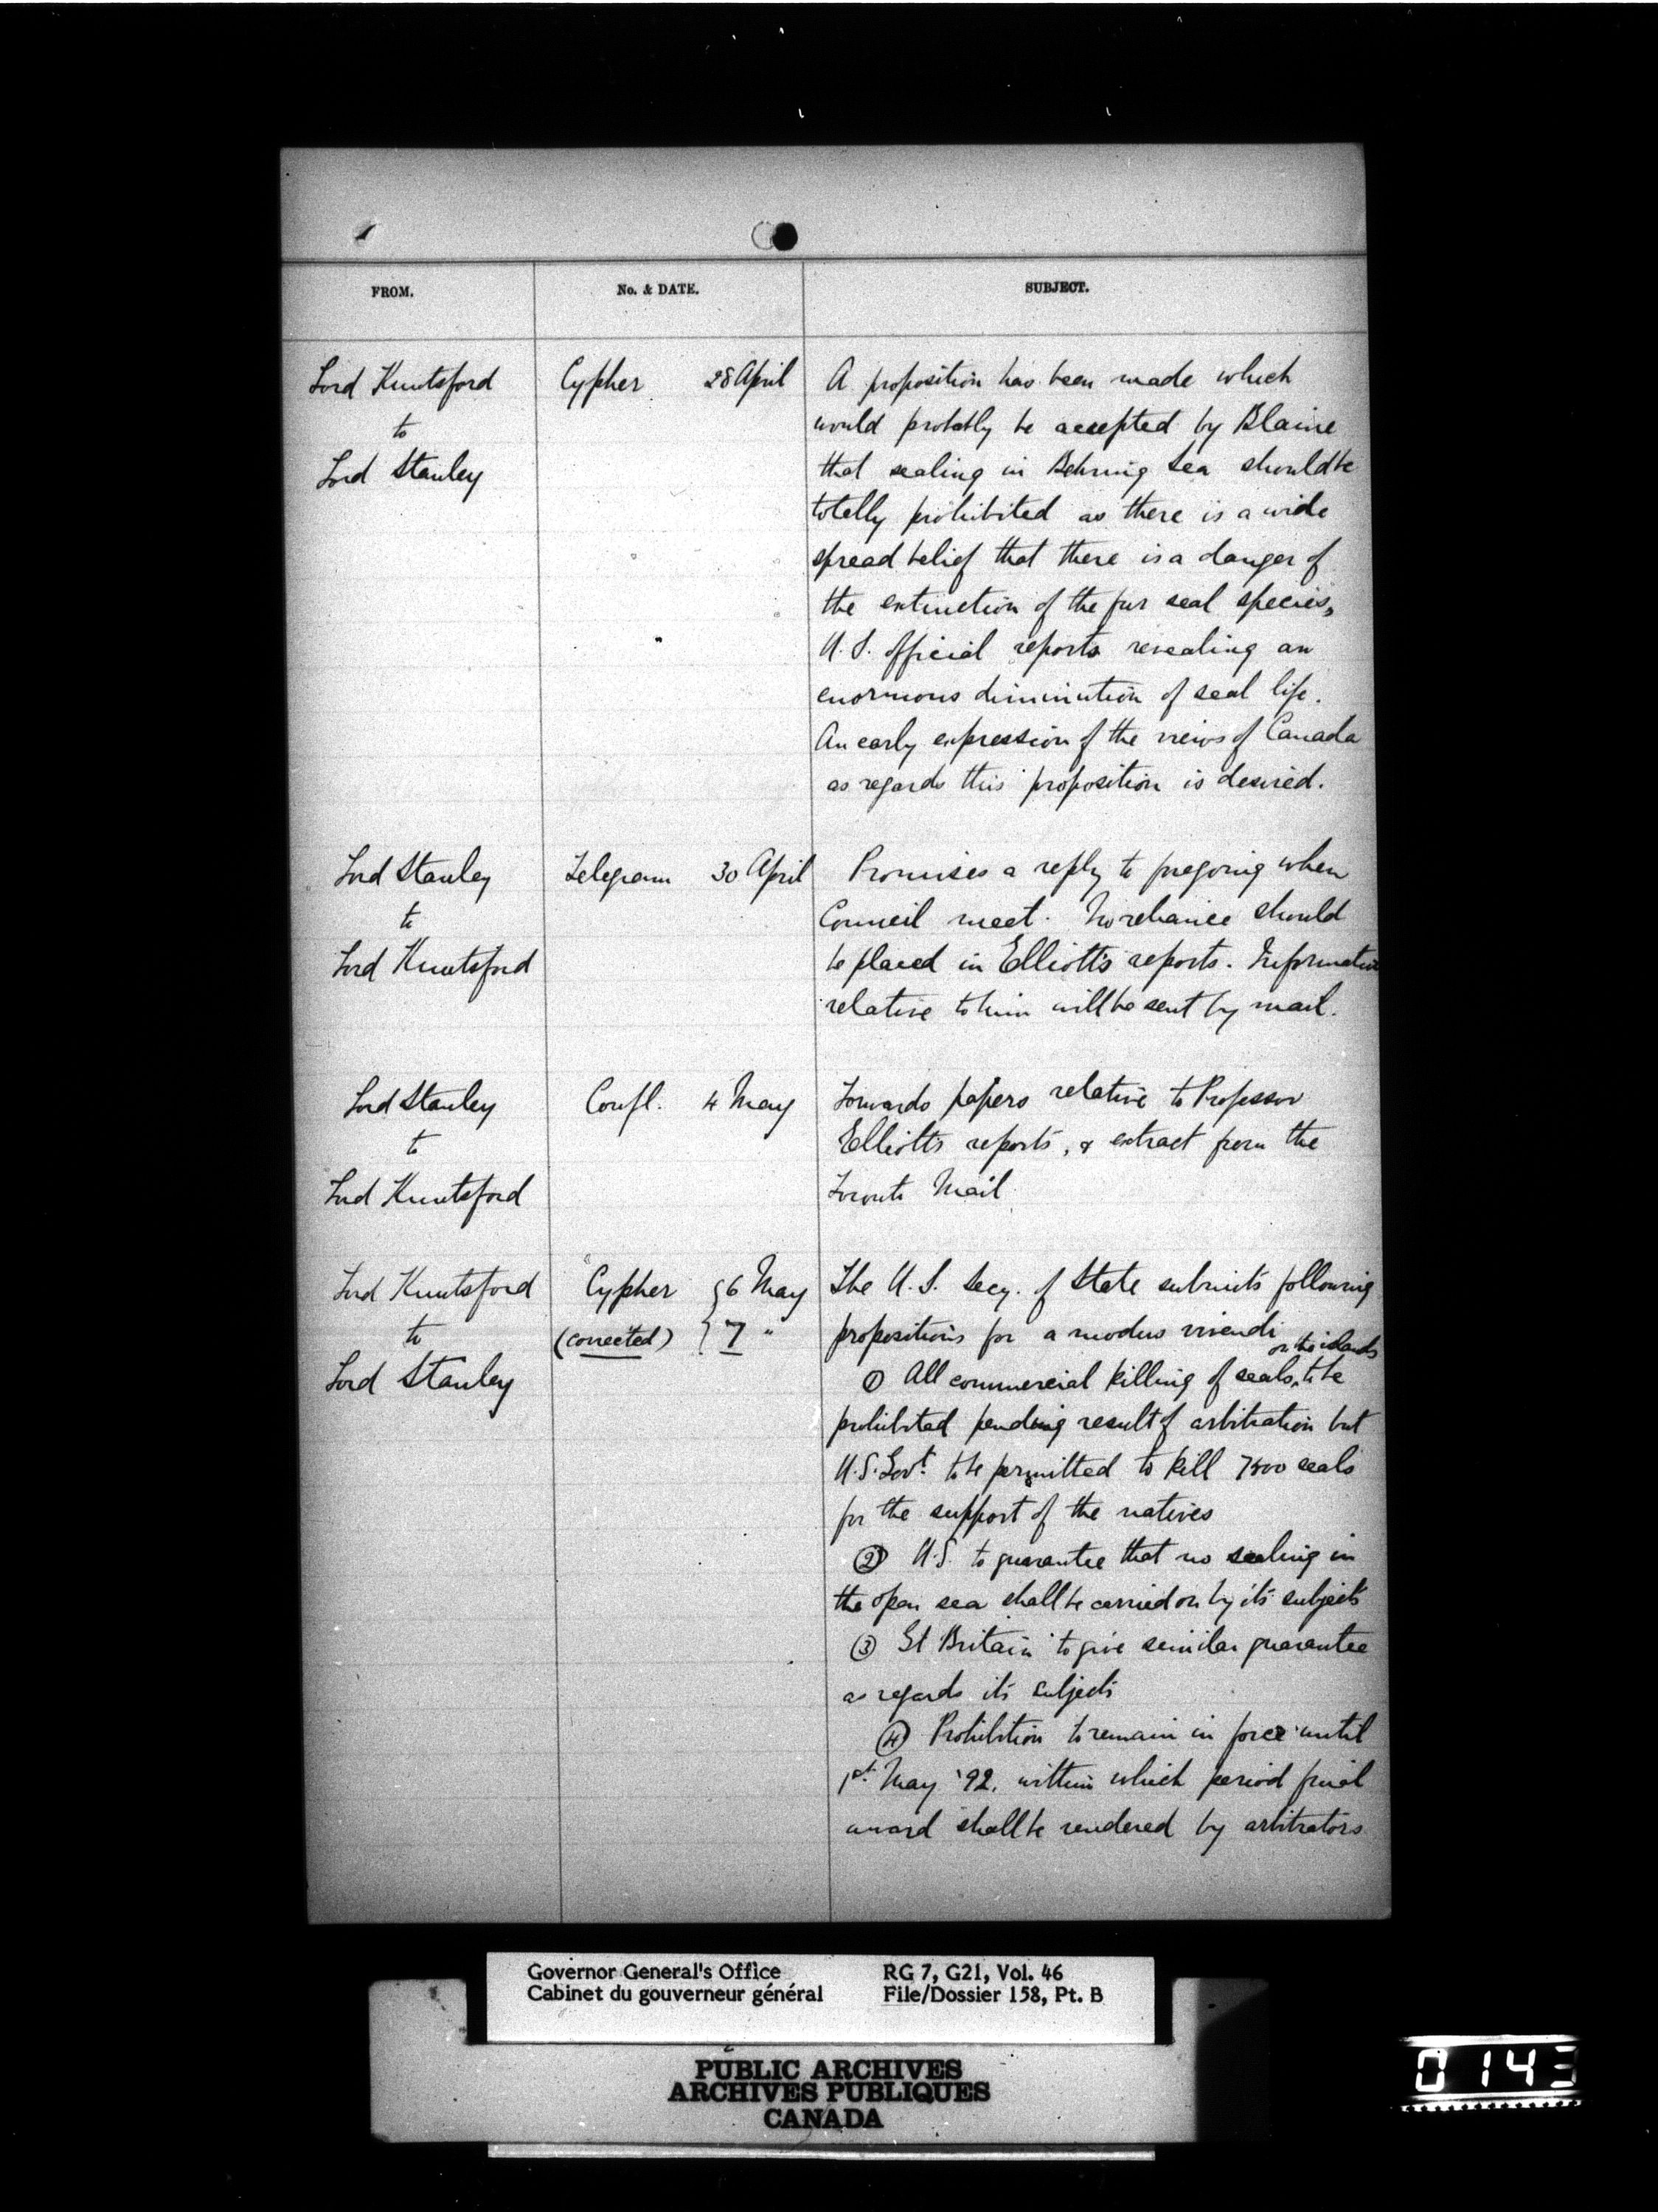 FROM. No. & DATE. SUBJECT.
Lord Knutsford Cypher 28 April A proposition has been made which
to would probably be accepted by Blaine
Lord Stanley that sealing in Behring Sea should be
totally prohibited as there is a wide
spread belief that there is a danger of
the extinction of the fur seal species,
U.S. official reports revealing an
enormous diminution of seal life.
An early expression of the views of Canada
as regards this proposition is desired.
Lord Stanley Telegram 30 April Promises a reply to foregoing when
to Council meet. No reliance should
Lord Knutsford be placed in Elliott's reports. Information
relative to him will be sent by mail.
Lord Stanley Confl. 4 May Forwards papers relative to Professor
to Elliott's reports, & extract from the
Lord Knutsford Toronto Mail
Lord Knutsford Cypher 6 May The U.S. Secy. of State submits following
to (corrected) 7 " propositions for a modus vivendi
on the islands
Lord Stanley ① All commercial killing of seals to be
prohibited pending result of arbitration but
U.S. Govt. to be permitted to kill 7500 seals
for the support of the natives
② U.S. to guarantee that no sealing in
the open sea shall be carried on by its subjects
③ Gt Britain to give similar guarantee
as regards its subjects
④ Prohibition to remain in force until
1st May '92, within which period final
award shall be rendered by arbitrators
Governor General's Office RG 7, G21, Vol. 46
Cabinet du gouverneur général File/Dossier 158, Pt. B
PUBLIC ARCHIVES
ARCHIVES PUBLIQUES
CANADA
0143